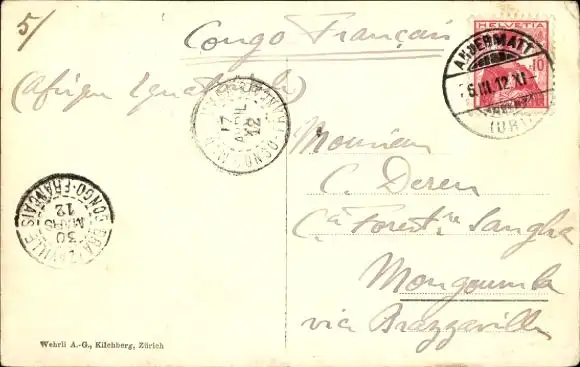 5/
Congo Français
(Afrique Equatoriale)
HELVETIA
10
ANDERMATT
6.III.12.XI
(URI)
17
AVRIL
12
BRAZZAVILLE
30
MARS
12
CONGO-FRANÇAIS
Monsieur
C. Deren
Cie Forestière Sangha
Mongoumba
via Brazzaville
Wehrli A.-G., Kilchberg, Zürich